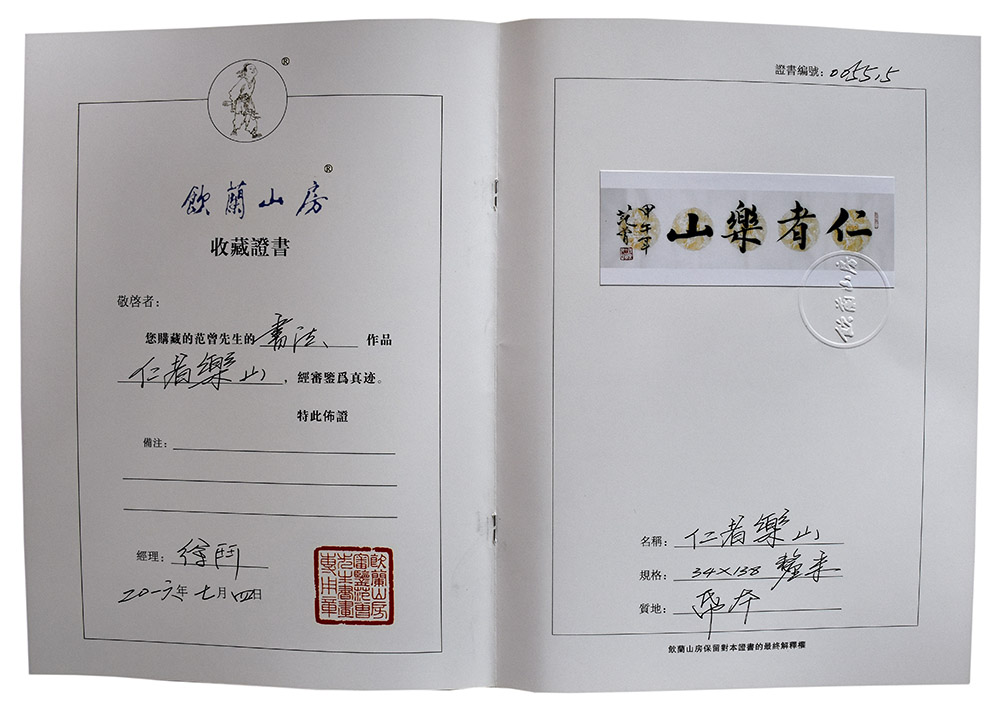 ®
飲蘭山房®
收藏證書
敬啓者：
您購藏的范曾先生的書法作品
仁者樂山，經審鑒爲真迹。
特此佈證
備注：
經理：
二〇一六年七月四日
飲蘭山房
審鑒范曾
先生書畫
專用章
證書編號：00555
仁者樂山
甲午年
范曾
名稱：仁者樂山
規格：34×138釐米
質地：紙本
飲蘭山房保留對本證書的最終解釋權